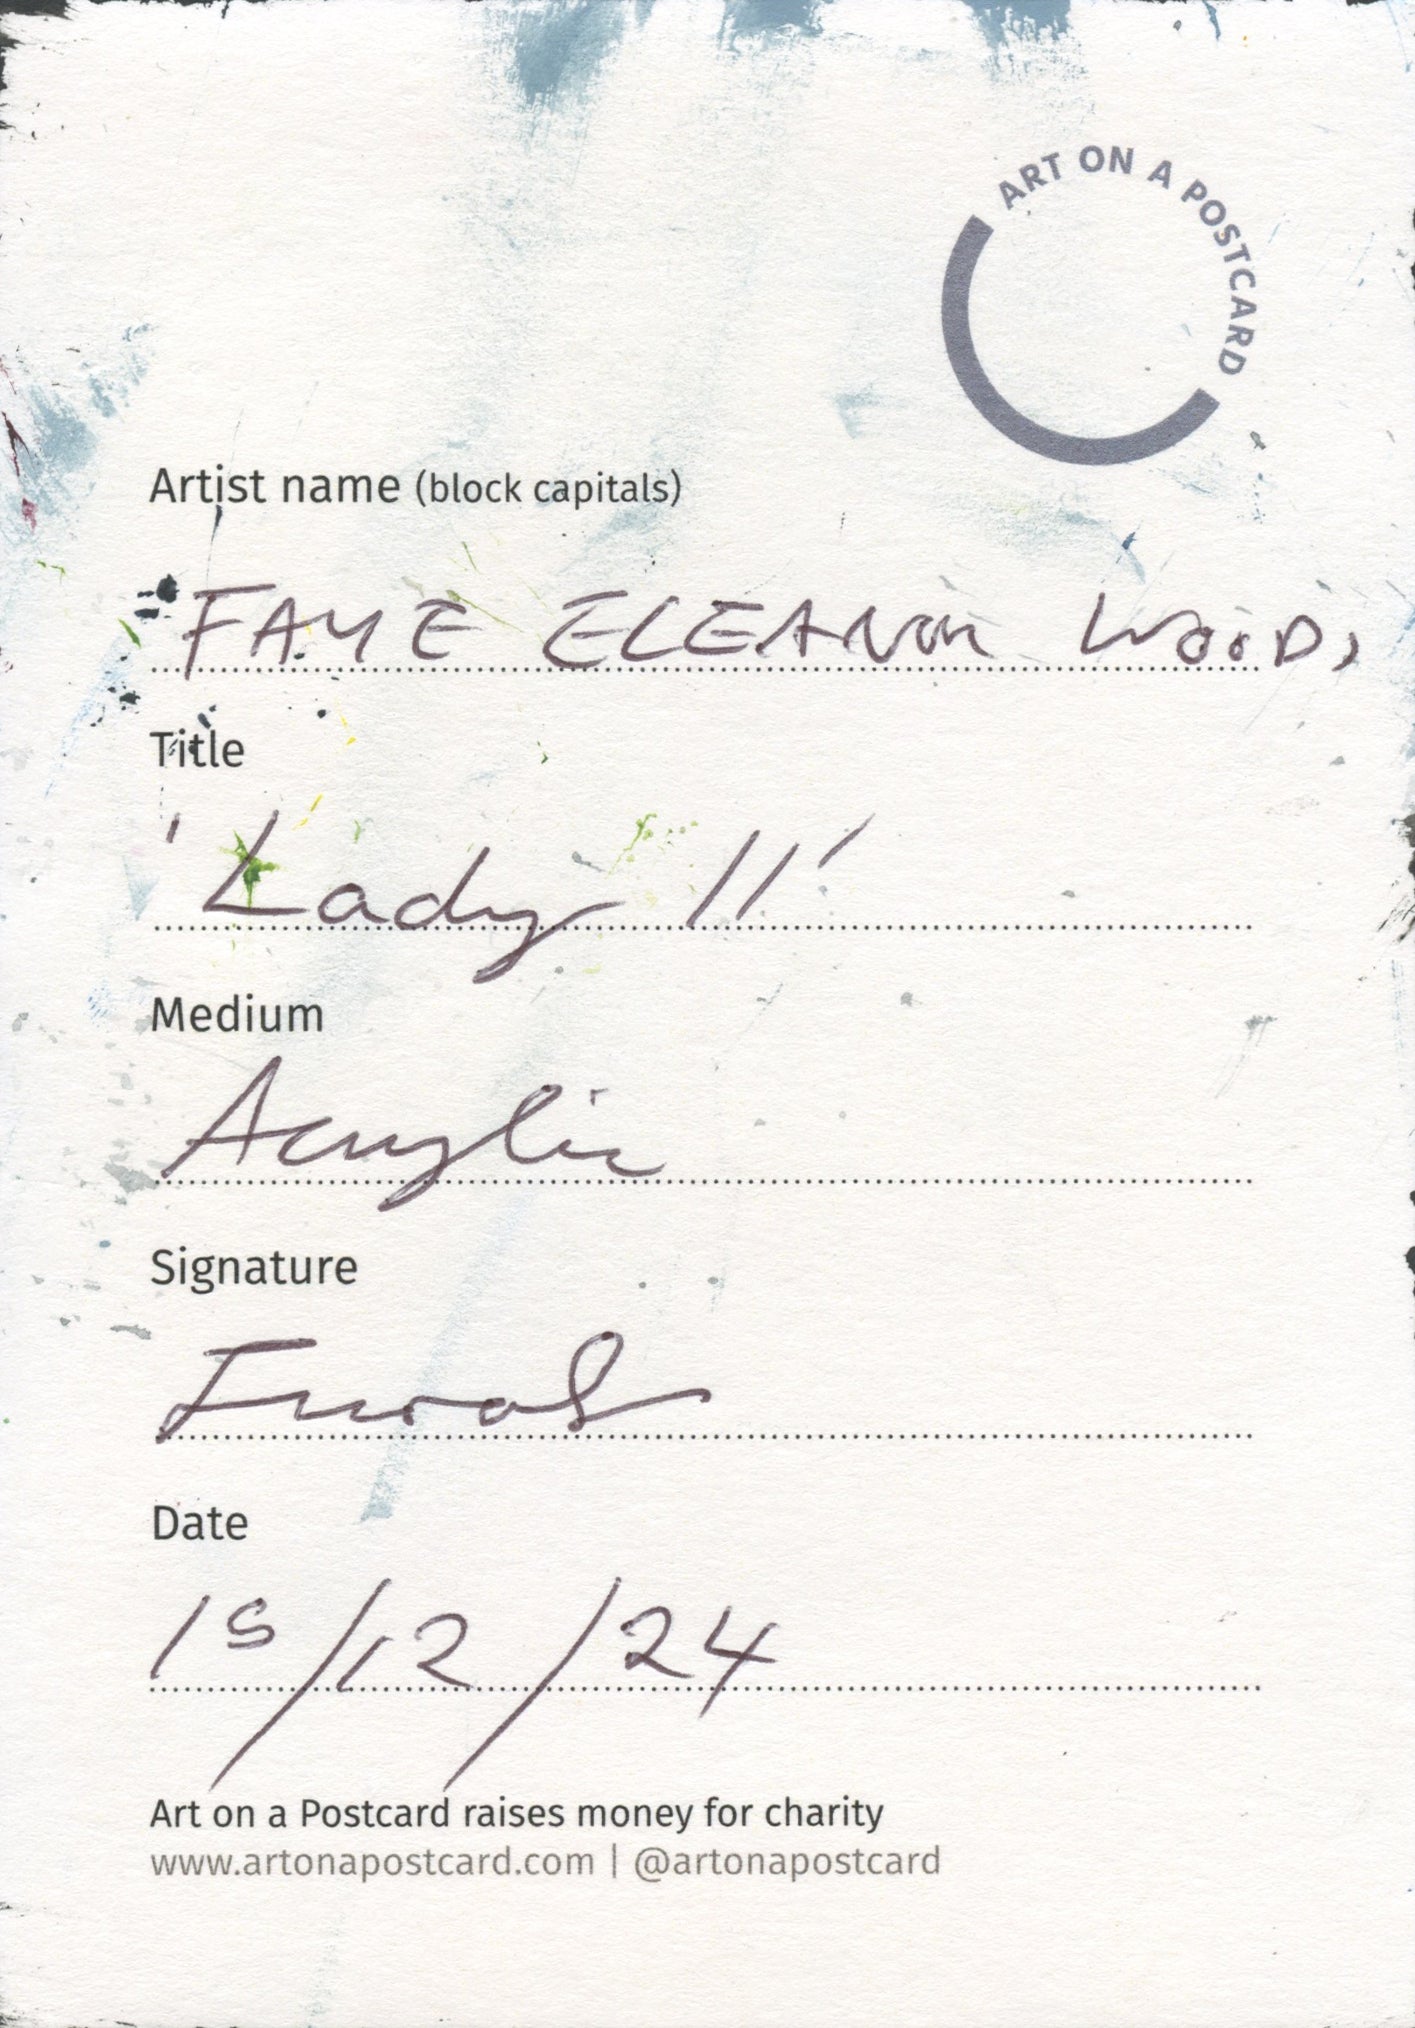 ART ON A POSTCARD
Artist name (block capitals)
FAYE ELEANOR WOODS
Title
'Lady 11'
Medium
Acrylic
Signature
Date
15/12/24
Art on a Postcard raises money for charity
www.artonapostcard.com | @artonapostcard